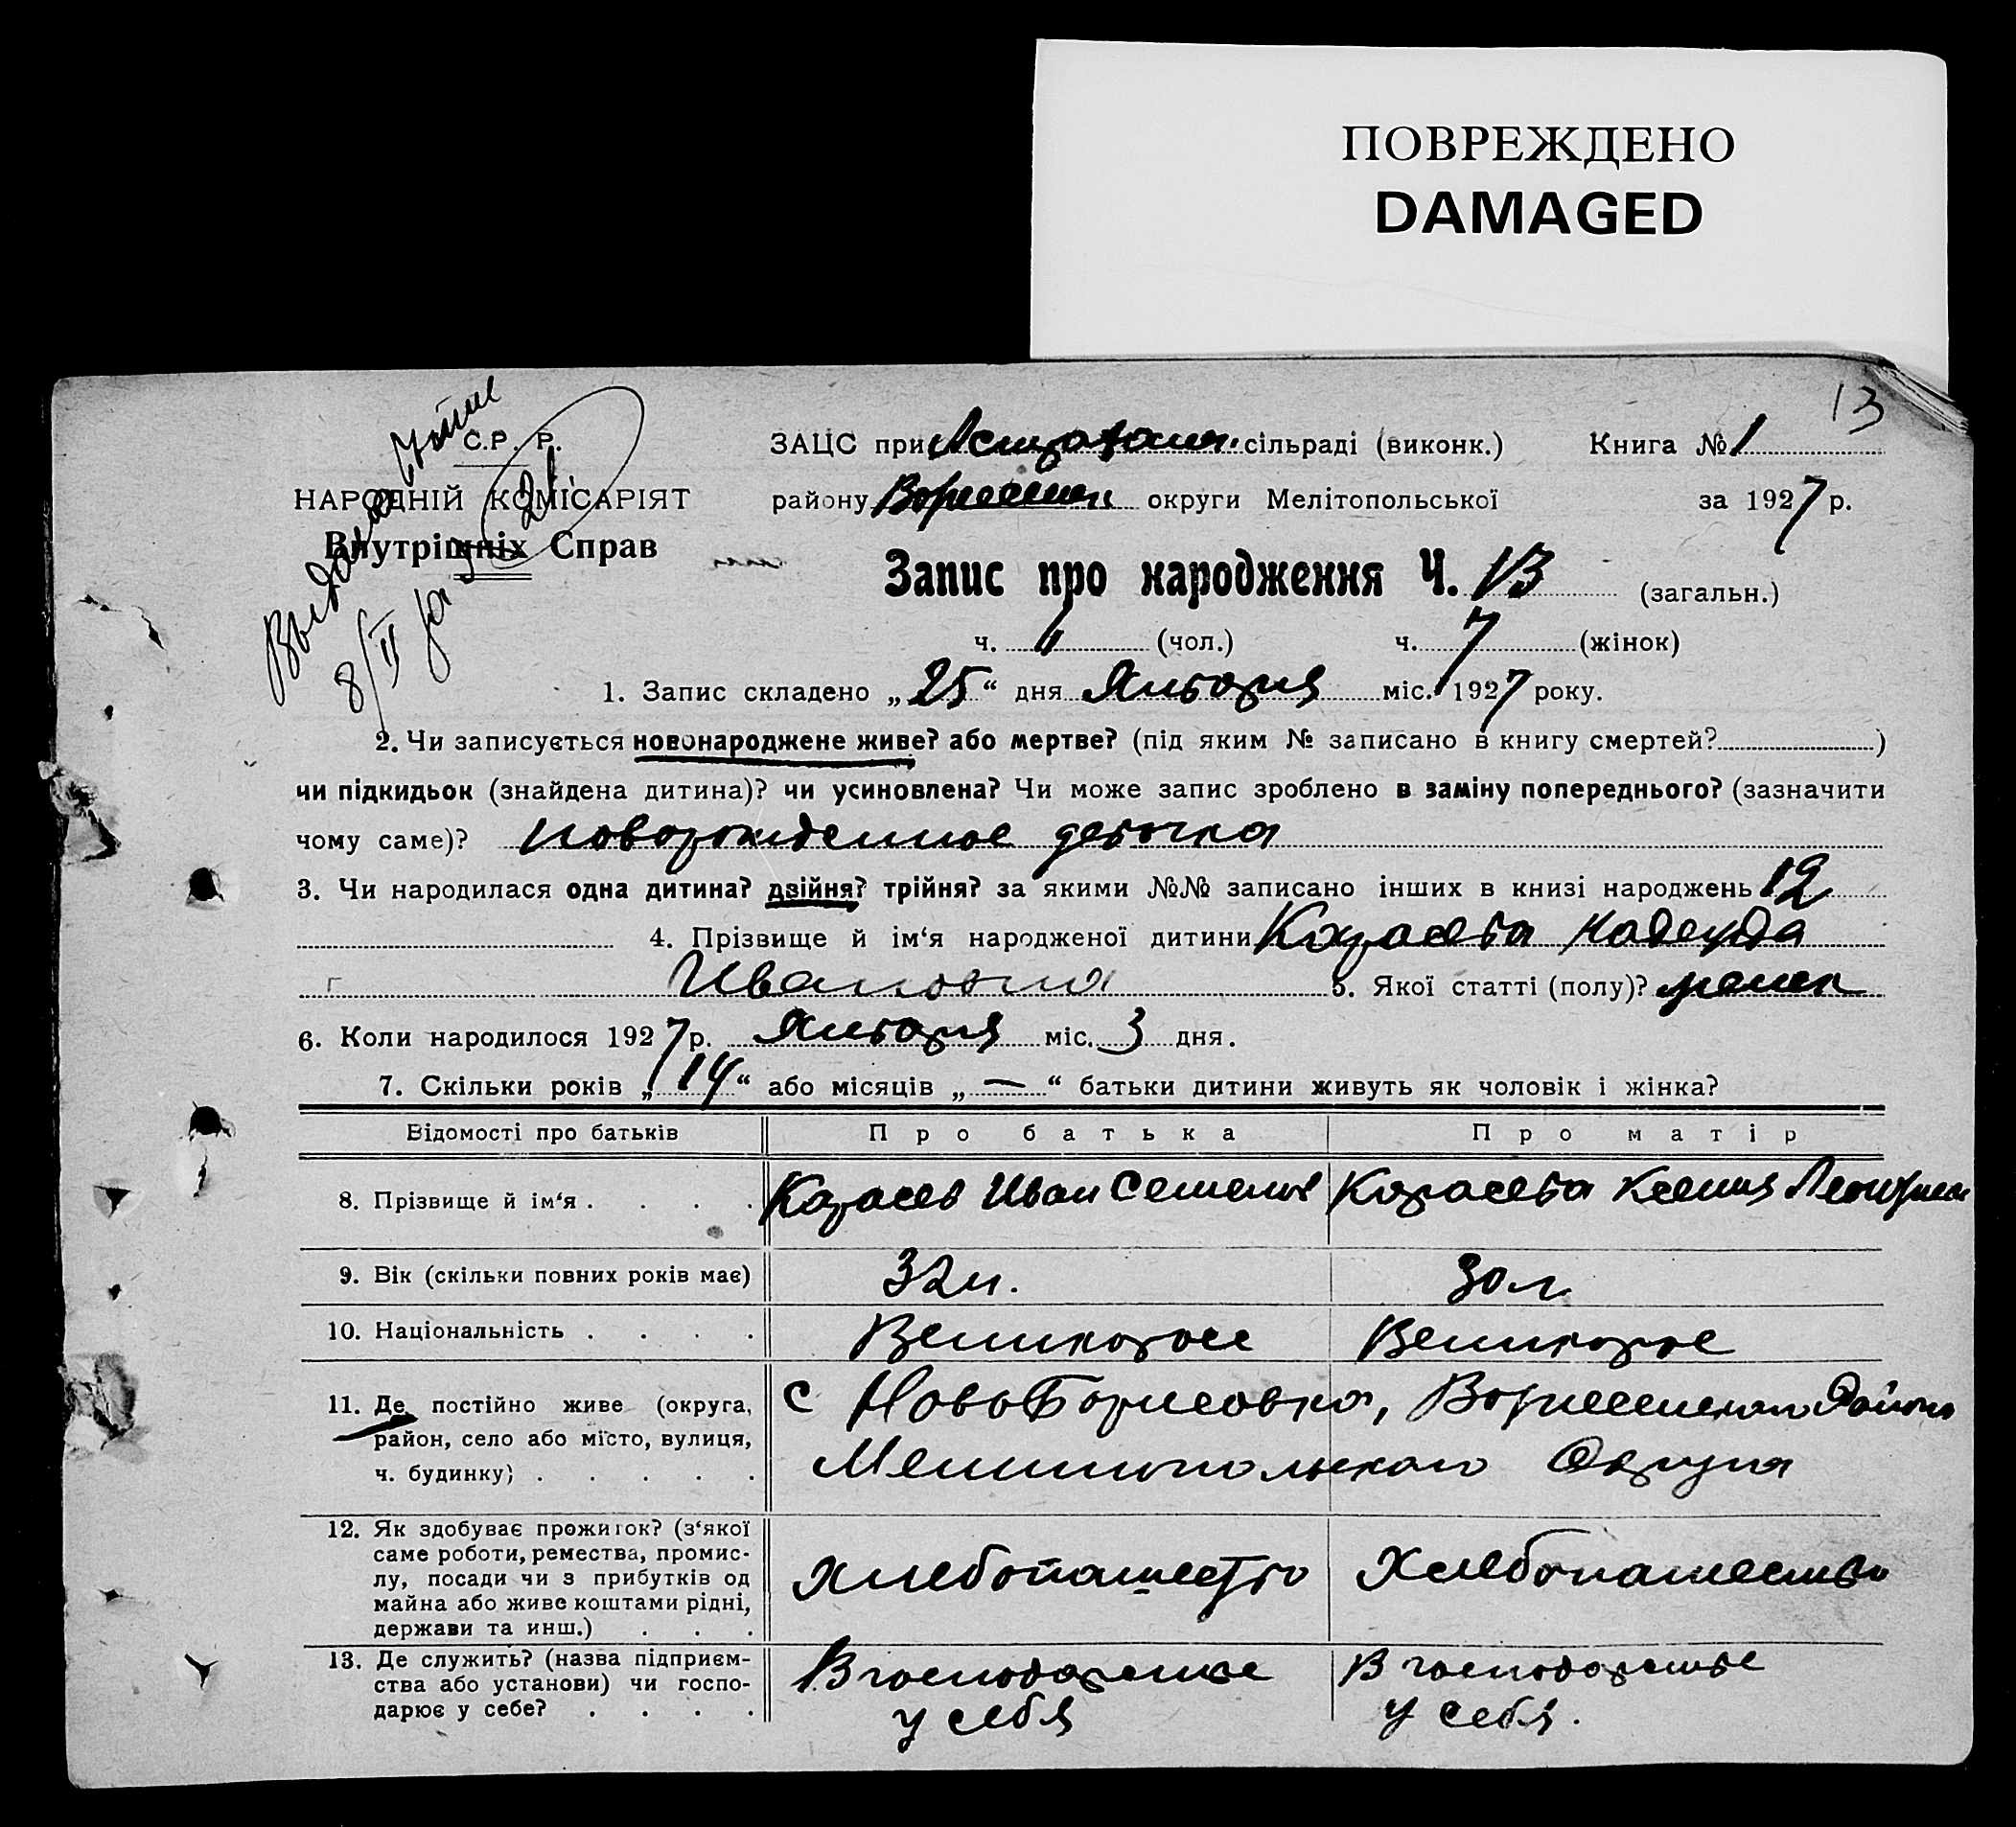 ПОВРЕЖДЕНО
DAMAGED
13
С.Р. Р.
НАРОДНІЙ КОМІСАРІЯТ
Внутрішніх Справ
Выдана
8/II за № 21
ЗАЦС при сільраді (виконк.) Книга № 1
району округи Мелітопольської за 1927 р.
Запис про народження Ч. 13 (загальн.)
ч. (чол.) ч. 7 (жінок)
1. Запис складено „25“ дня Января міс. 1927 року.
2. Чи записується новонароджене живе? або мертве? (під яким № записано в книгу смертей? )
чи підкидьок (знайдена дитина)? чи усиновлена? Чи може запис зроблено в заміну попереднього? (зазначити
чому саме)? новорожденное девочка
3. Чи народилася одна дитина? двійня? трійня? за якими №№ записано інших в книзі народжень 12
4. Прізвище й ім‘я народженої дитини Карасева Надежда
Ивановна 5. Якої статті (полу)? женск
6. Коли народилося 1927 р. Января міс. 3 дня.
7. Скільки років „14“ або місяців „—“ батьки дитини живуть як чоловік і жінка?
Відомості про батьків Про батька Про матір
8. Прізвище й ім‘я . . . . Карасев Иван Семенов Карасева Ксения
9. Вік (скільки повних років має) 32 л. 30 л.
10. Національність . . . . Великоросс Великорос
11. Де постійно живе (округа,
район, село або місто, вулиця,
ч. будинку) . . . . .
с НовоБорисовка, Вознесенского Района
Мелитопольского Округа
12. Як здобуває прожиток? (з‘якої
саме роботи, ремества, промис-
лу, посади чи з прибутків од
майна або живе коштами рідні,
держави та инш.) . . .
Хлебопашество Хлебопашество
13. Де служить? (назва підприєм-
ства або установи) чи госпо-
дарює у себе? . . . .
В господарстве В господарстве
у себя у себя.